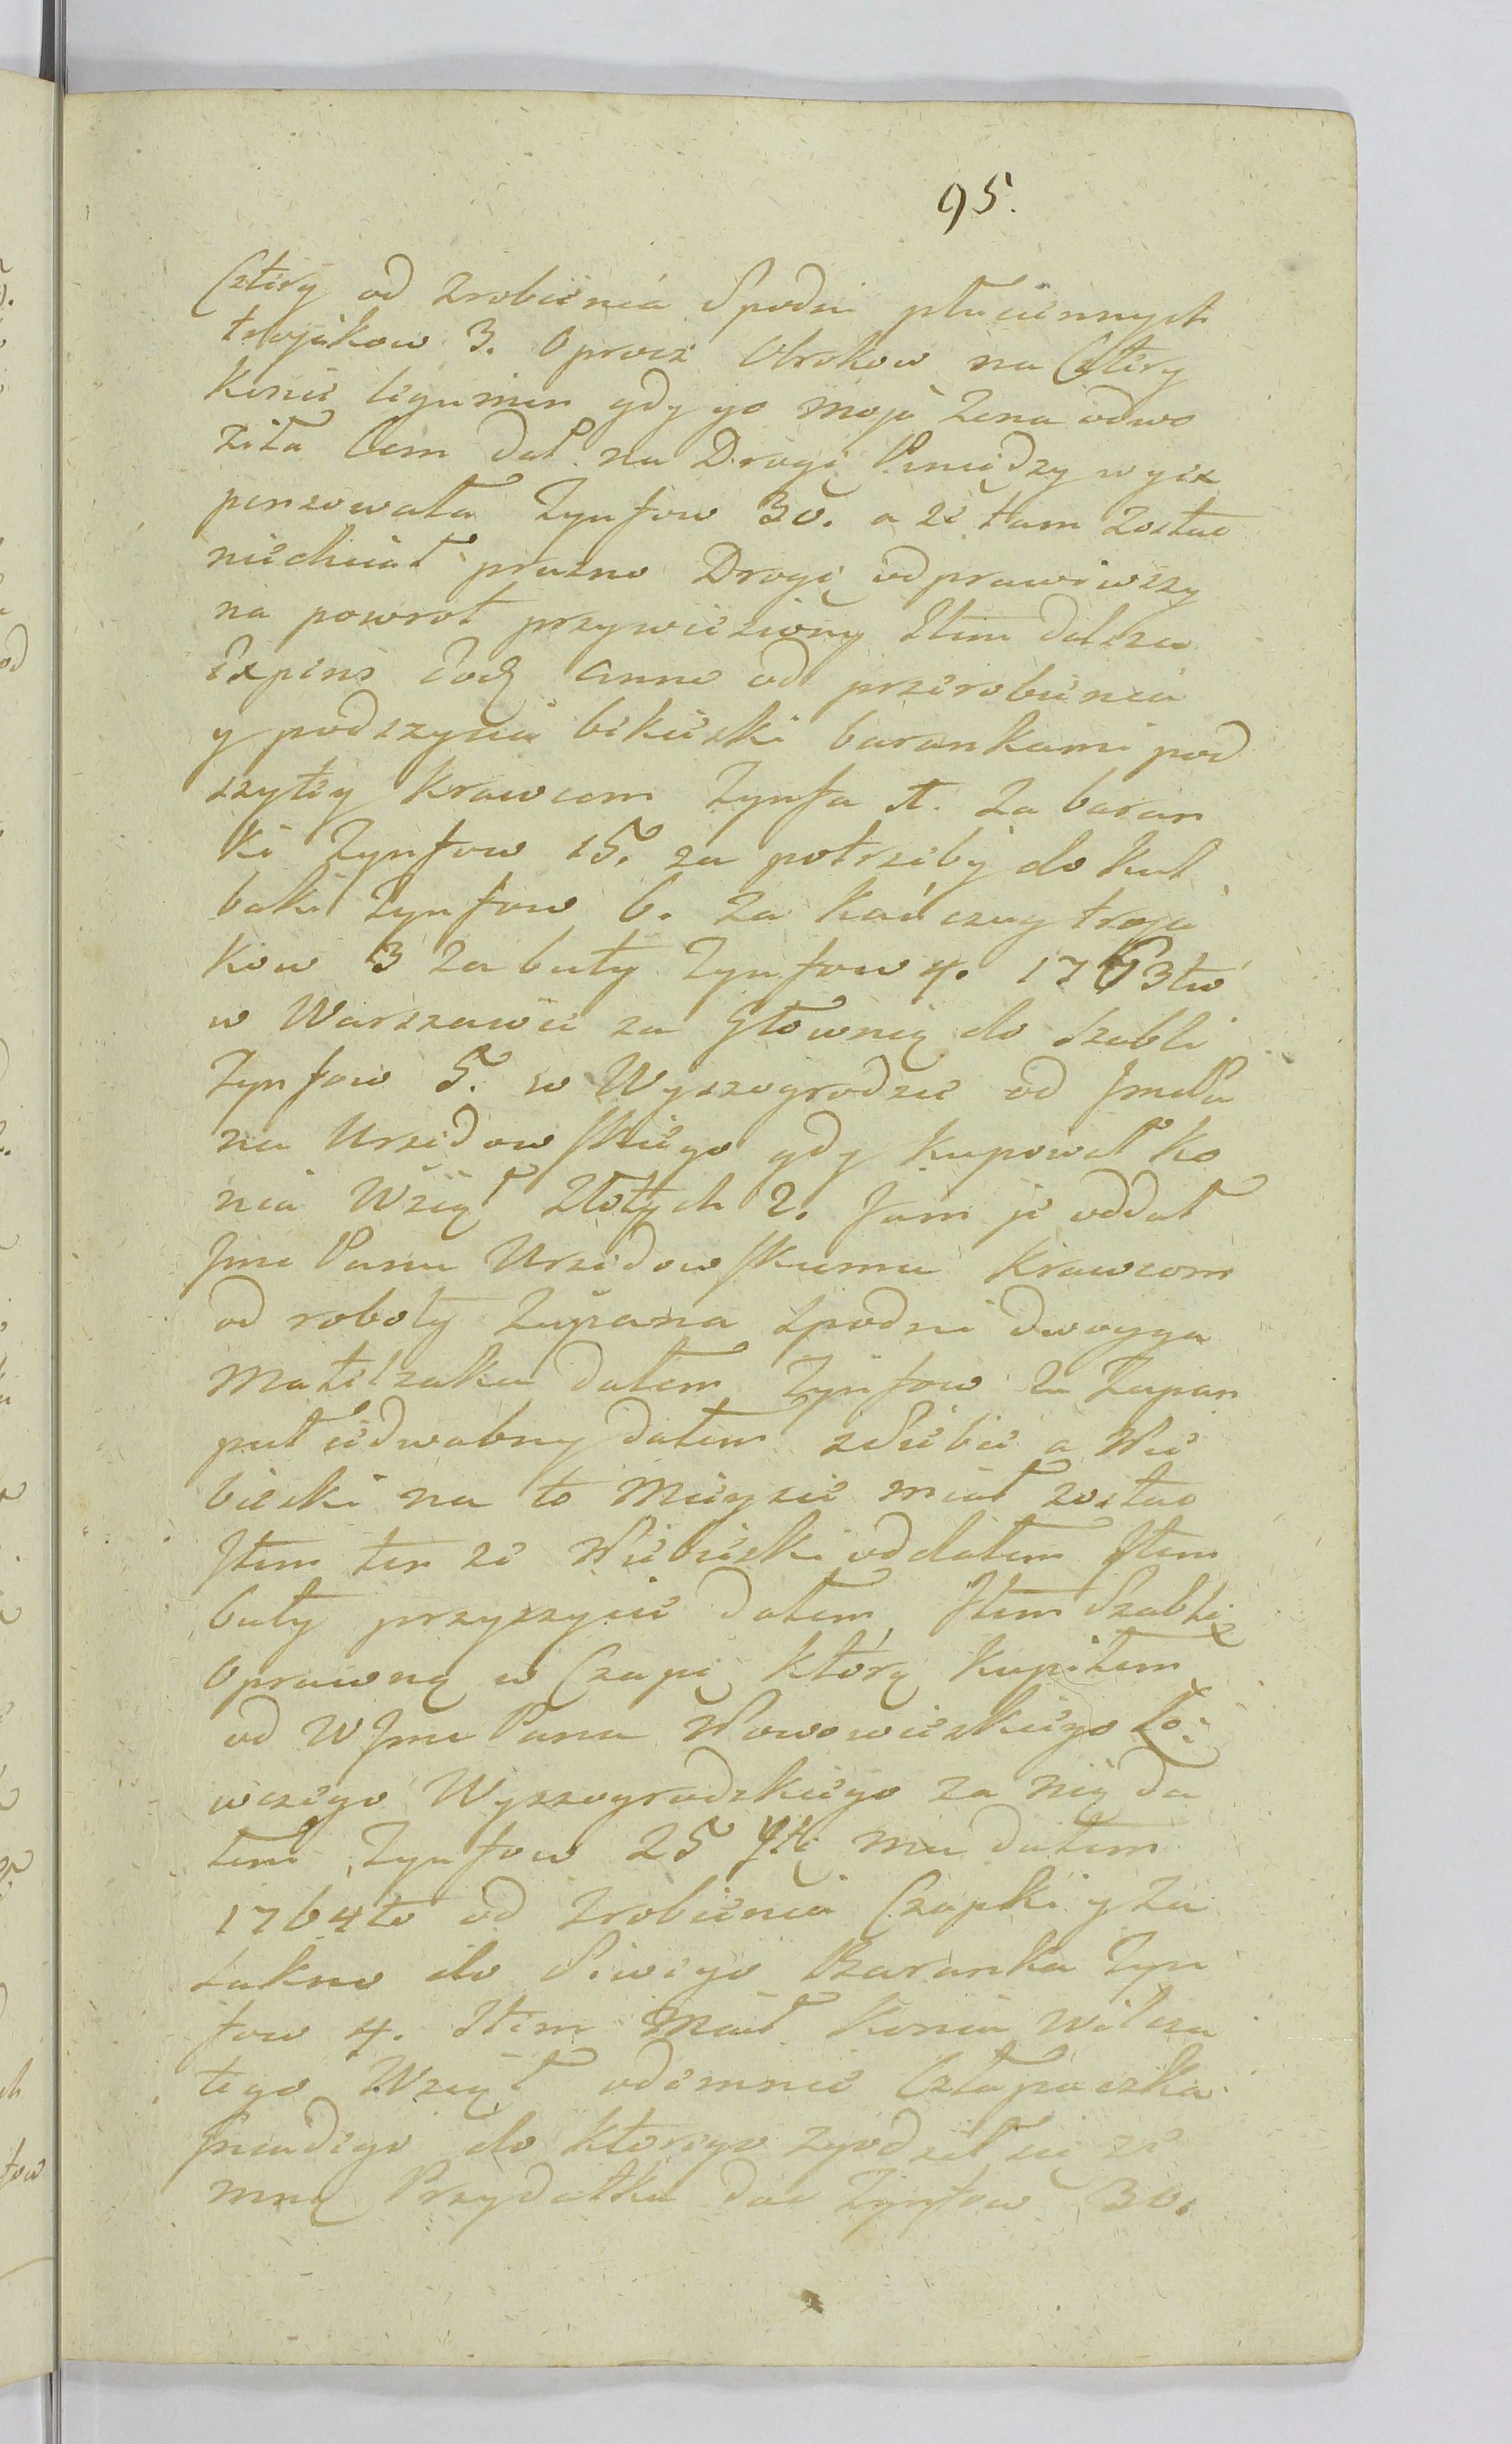 95.
Cztery od zrobienia Spodni płuciennych
trojakow 3. oprocz Obrokow na Cztery
konie legumin gdy go moja zona odwo
ziła Com dał na Drogę Pieniędzy wyex
penzowała Tynfow 30. a że tam zostac
niechciał prozno Drogę odprawiwszy
na powrot przywieziony Item dalsza
Expens Eodem Anno od przerobienia
y podszycia bekieszki barankami pod
szytey krawcom Tynfa 1. Za baran
ki Tynfow 15. za potrzeby do kul
baki Tynfow 6. Za kańczug troja
kow 3 za buty Tynfow 4. 1763tio
w Warszawie za Głownię do szabli
Tynfow 5. w Wyszogrodzie od Jmć Pa
na Urzędowskiego gdy kupował ko
nia Wziął Złotych 2. Jam je oddał
Jmć Panu Urzedowskiemu krawcom
od roboty Zupana spodni dwoyga
Matelzaku dałem Tynfow 2 Zupan
puł iedwabny dałem z siebie a Nie
bieski na to Mieysce miał zostac
Item ten że Niebieski oddałem Item
buty przyszycie dałem Item Szablę
Oprawną w Czapę którą kupiłem
od WJmć Pana Nowowieskiego Ło:
wczego Wyszogrodzkiego za nię da
łem Tynfow 25 y tę mu dałem
1764to od zrobienia Czapki y za
sukno do Siwego Baranka Tyn
fow 4. Item Miał konia wilcza
tego Wziął odemnie Człapaczka
Gniadego do ktorego zgodził się ze
mną Przydatku dac Tynfow 30.